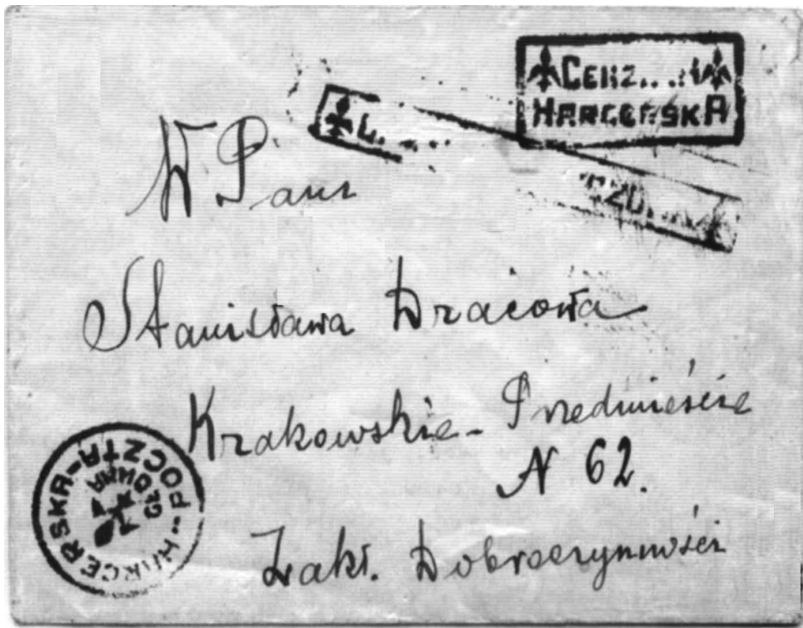 CENZ...A
HARCERSKA
W Pani
Stanisława Dracowa
Krakowskie-Przedmieście
N 62.
Zakł. Dobroczynności
HARCERSKA-POCZTA
GŁÓWNA